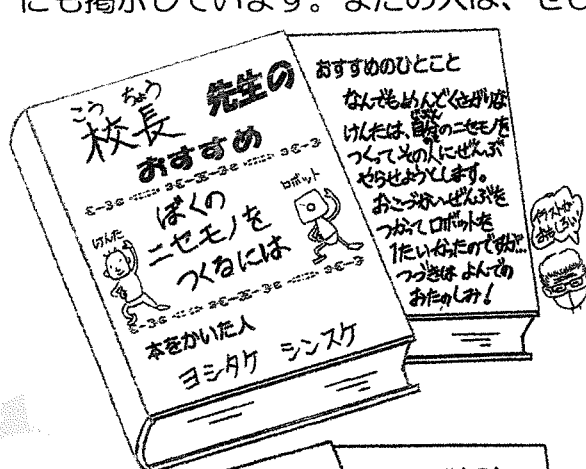 にも掲示しています。まだの人は、ぜひ
こう ちょう
校長 先生の
おすすめ
ロボット
けんた
ぼくの
ニセモノを
つくるには
本をかいた人
ヨシタケ シンスケ
おすすめのひとこと
なんでもめんどくさがりな
けんたは、自分のニセモノを
つくってその人にぜんぶ
やらせようとします。
おこづかいぜんぶを
つかってロボットを
1たいかったのですが…
つづきは よんでの
おたのしみ!
イラストが
おもしろい